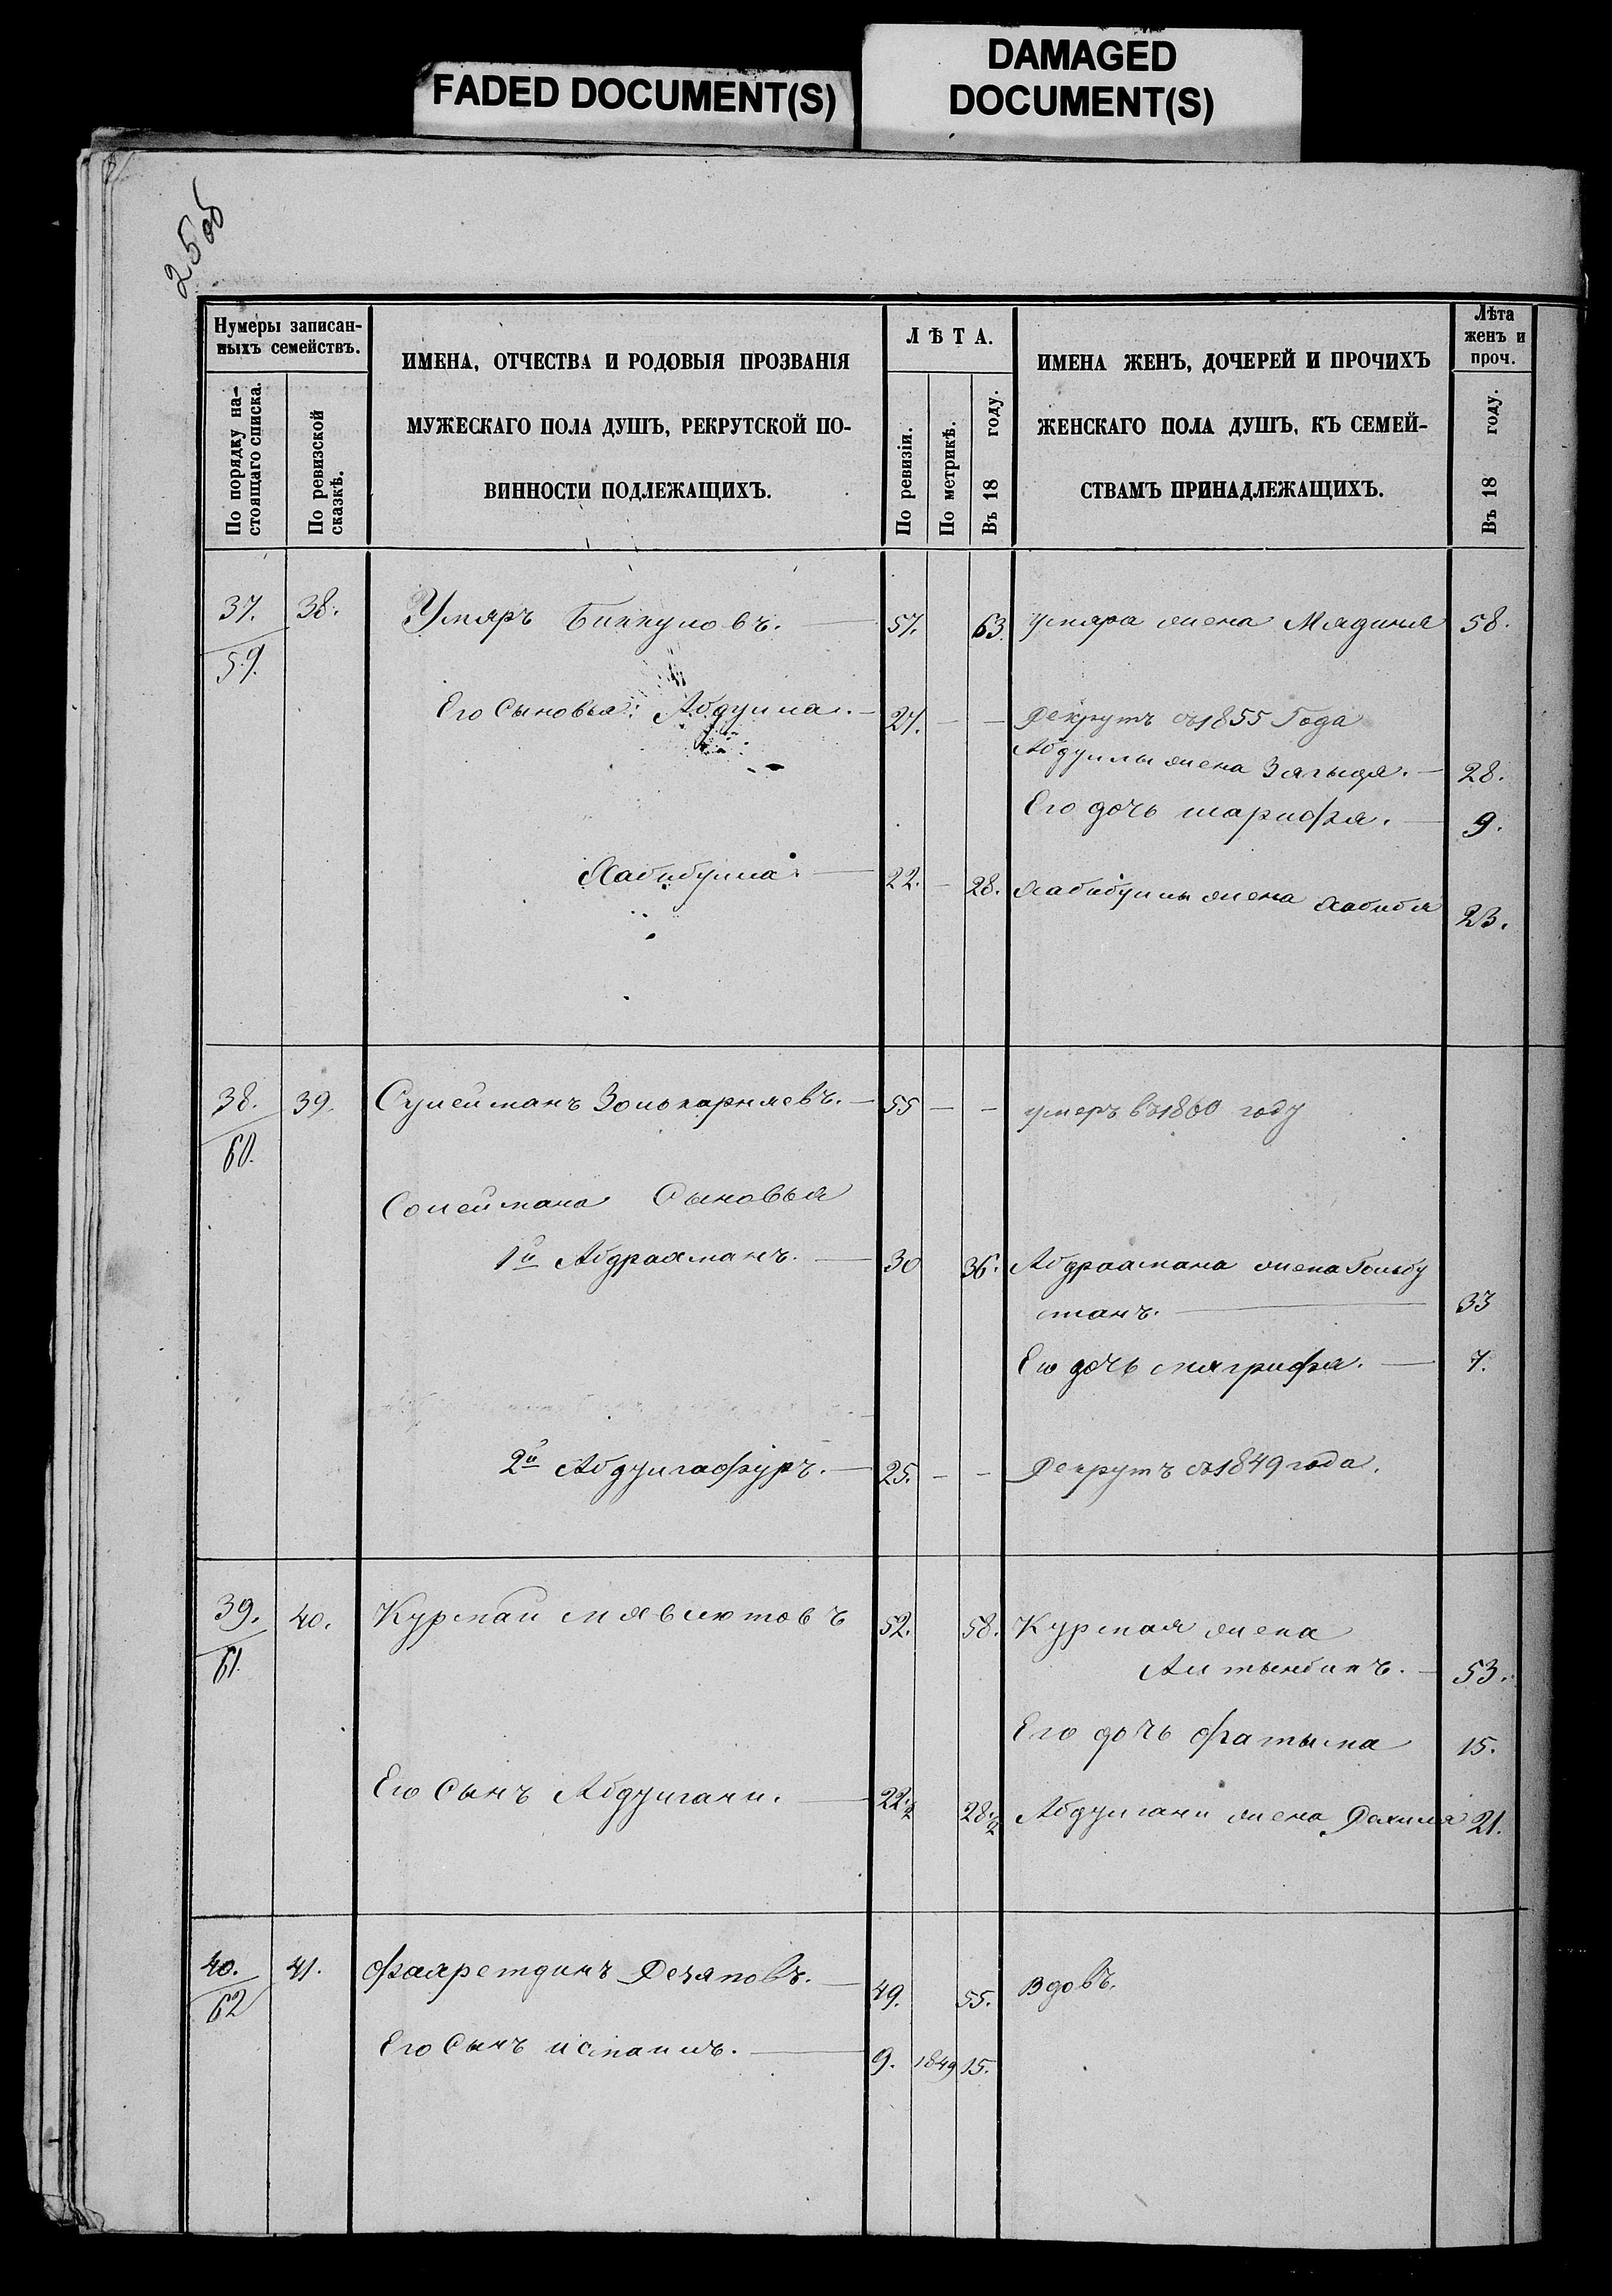 FADED DOCUMENT(S)
DAMAGED
DOCUMENT(S)
25об
Нумеры записан-
ныхъ семействъ.
По порядку на-
стоящаго списка.
По ревизской
сказкѣ.
ИМЕНА, ОТЧЕСТВА И РОДОВЫЯ ПРОЗВАНІЯ
МУЖЕСКАГО ПОЛА ДУШЪ, РЕКРУТСКОЙ ПО-
ВИННОСТИ ПОДЛЕЖАЩИХЪ.
ЛѢТА.
По ревизіи.
По метрикѣ.
Въ 18 году.
ИМЕНА ЖЕНЪ, ДОЧЕРЕЙ И ПРОЧИХЪ
ЖЕНСКАГО ПОЛА ДУШЪ, КЪ СЕМЕЙ-
СТВАМЪ ПРИНАДЛЕЖАЩИХЪ.
Лѣта
женъ и
проч.
Въ 18 году.
37. 38. Умяръ Биккуловъ. — 57. 63. Умяра жена Мядиня 58.
59.
Его Сыновья: Абдулла. — 27. — — Рекрутъ съ 1855 Года
Абдуллы жена Зягыдя. — 28.
Его дочь шарифа. — 9.
Хабибулла. — 22. — 28. Хабибуллы жена Хабибя 23.
38. 39. Сулейманъ Золькарняевъ. — 55 — — умеръ въ 1860 году
60.
Солеймана Сыновья
1й Абдрахманъ. — 30 36. Абдрахмана жена Гольбу
станъ. — 33
Его дочь мягрифа. — 7.
2й Абдулгафуръ. — 25. — — Рекрутъ съ 1849 года.
39. 40. Курмай мявлютовъ 52. 58. Курмая жена
61.
Алтынбикъ. — 53.
Его дочь фатыма 15.
Его Сынъ Абдулгани. — 22.½ 28.½ Абдулгани жена Рахиля 21.
40. 41. фахретдинъ Резяповъ. — 49. 55. Вдовъ.
62
Его Сынъ исмаилъ. — 9. 1849 15.